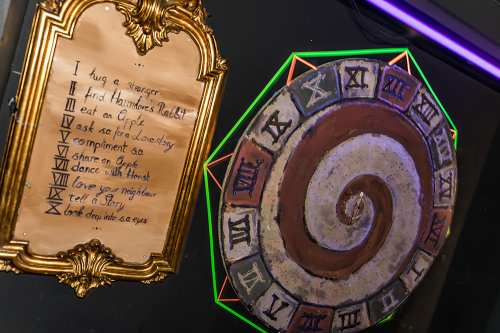 I hug a stranger
II find Hazmdove's Rabbit
III eat an Apple
IV ask so for a Lovestory
V compliment so
VI share an Apple
VII dance with Horst
VIII love your neighbour
IX tell a Story
X look deep into so eyes
XI
XII
XIII
XV
XVI
I
II
III
IV
V
VI
VII
VIII
IX
X